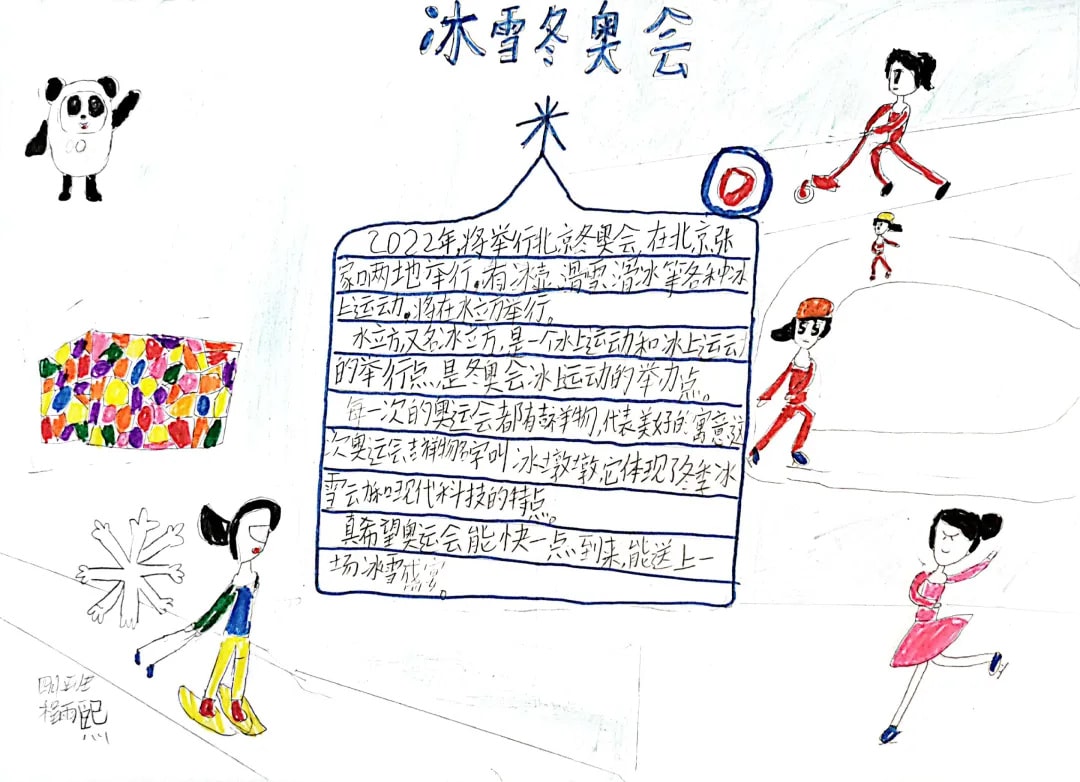 冰雪冬奥会
2022年,将举行北京冬奥会,在北京张
家口两地举行。有冰壶、滑雪、滑冰等各种冰
上运动。将在水立方举行。
水立方,又名冰立方,是一个水上运动和冰上运动
的举行点是冬奥会冰上运动的举力点。
每一次的奥运会都有吉祥物,代表美好的寓意这
次奥运会吉祥物名字叫冰墩墩,它体现了冬季冰
雪云动和现代科技的特点。
真希望奥运会能快一点到来,能送上一
场冰雪盛宴。
四班
程雨熙